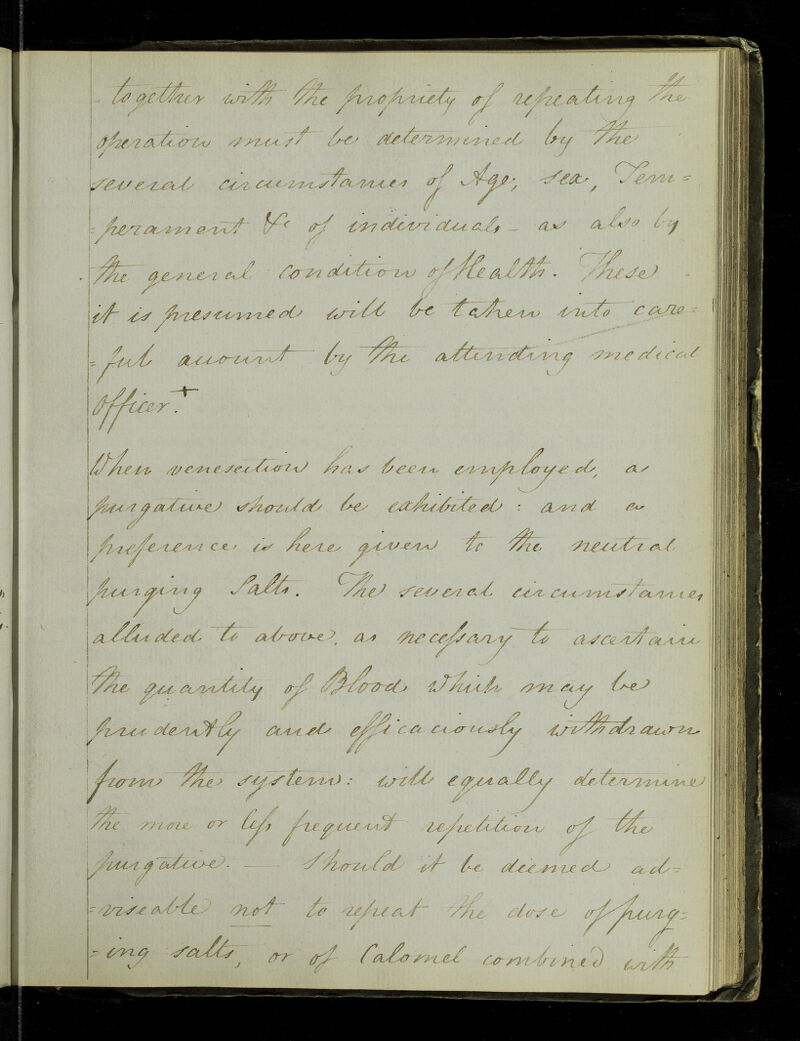 together with the propriety of repeating the
operation must be determined by the
several circumstances of Age, sex, Tem=
=perament &c of individuals - as also by
the general condition of Health. These
it is presumed will be taken into care=
=ful account by the attending medical
Officer.+
When venesection has been employed, a
purgative should be exhibited: and a
preference is here given to the neutral
purging Salts. The several circumstances
alluded to above, as necessary to ascertain
the quantity of Blood which may be
prudently and efficaciously withdrawn
from the system: will equally determine
the more or less frequent repetition of the
purgative. — Should it be deemed ad=
=viseable not to repeat the dose of purg=
=ing salts, or of Calomel combined with